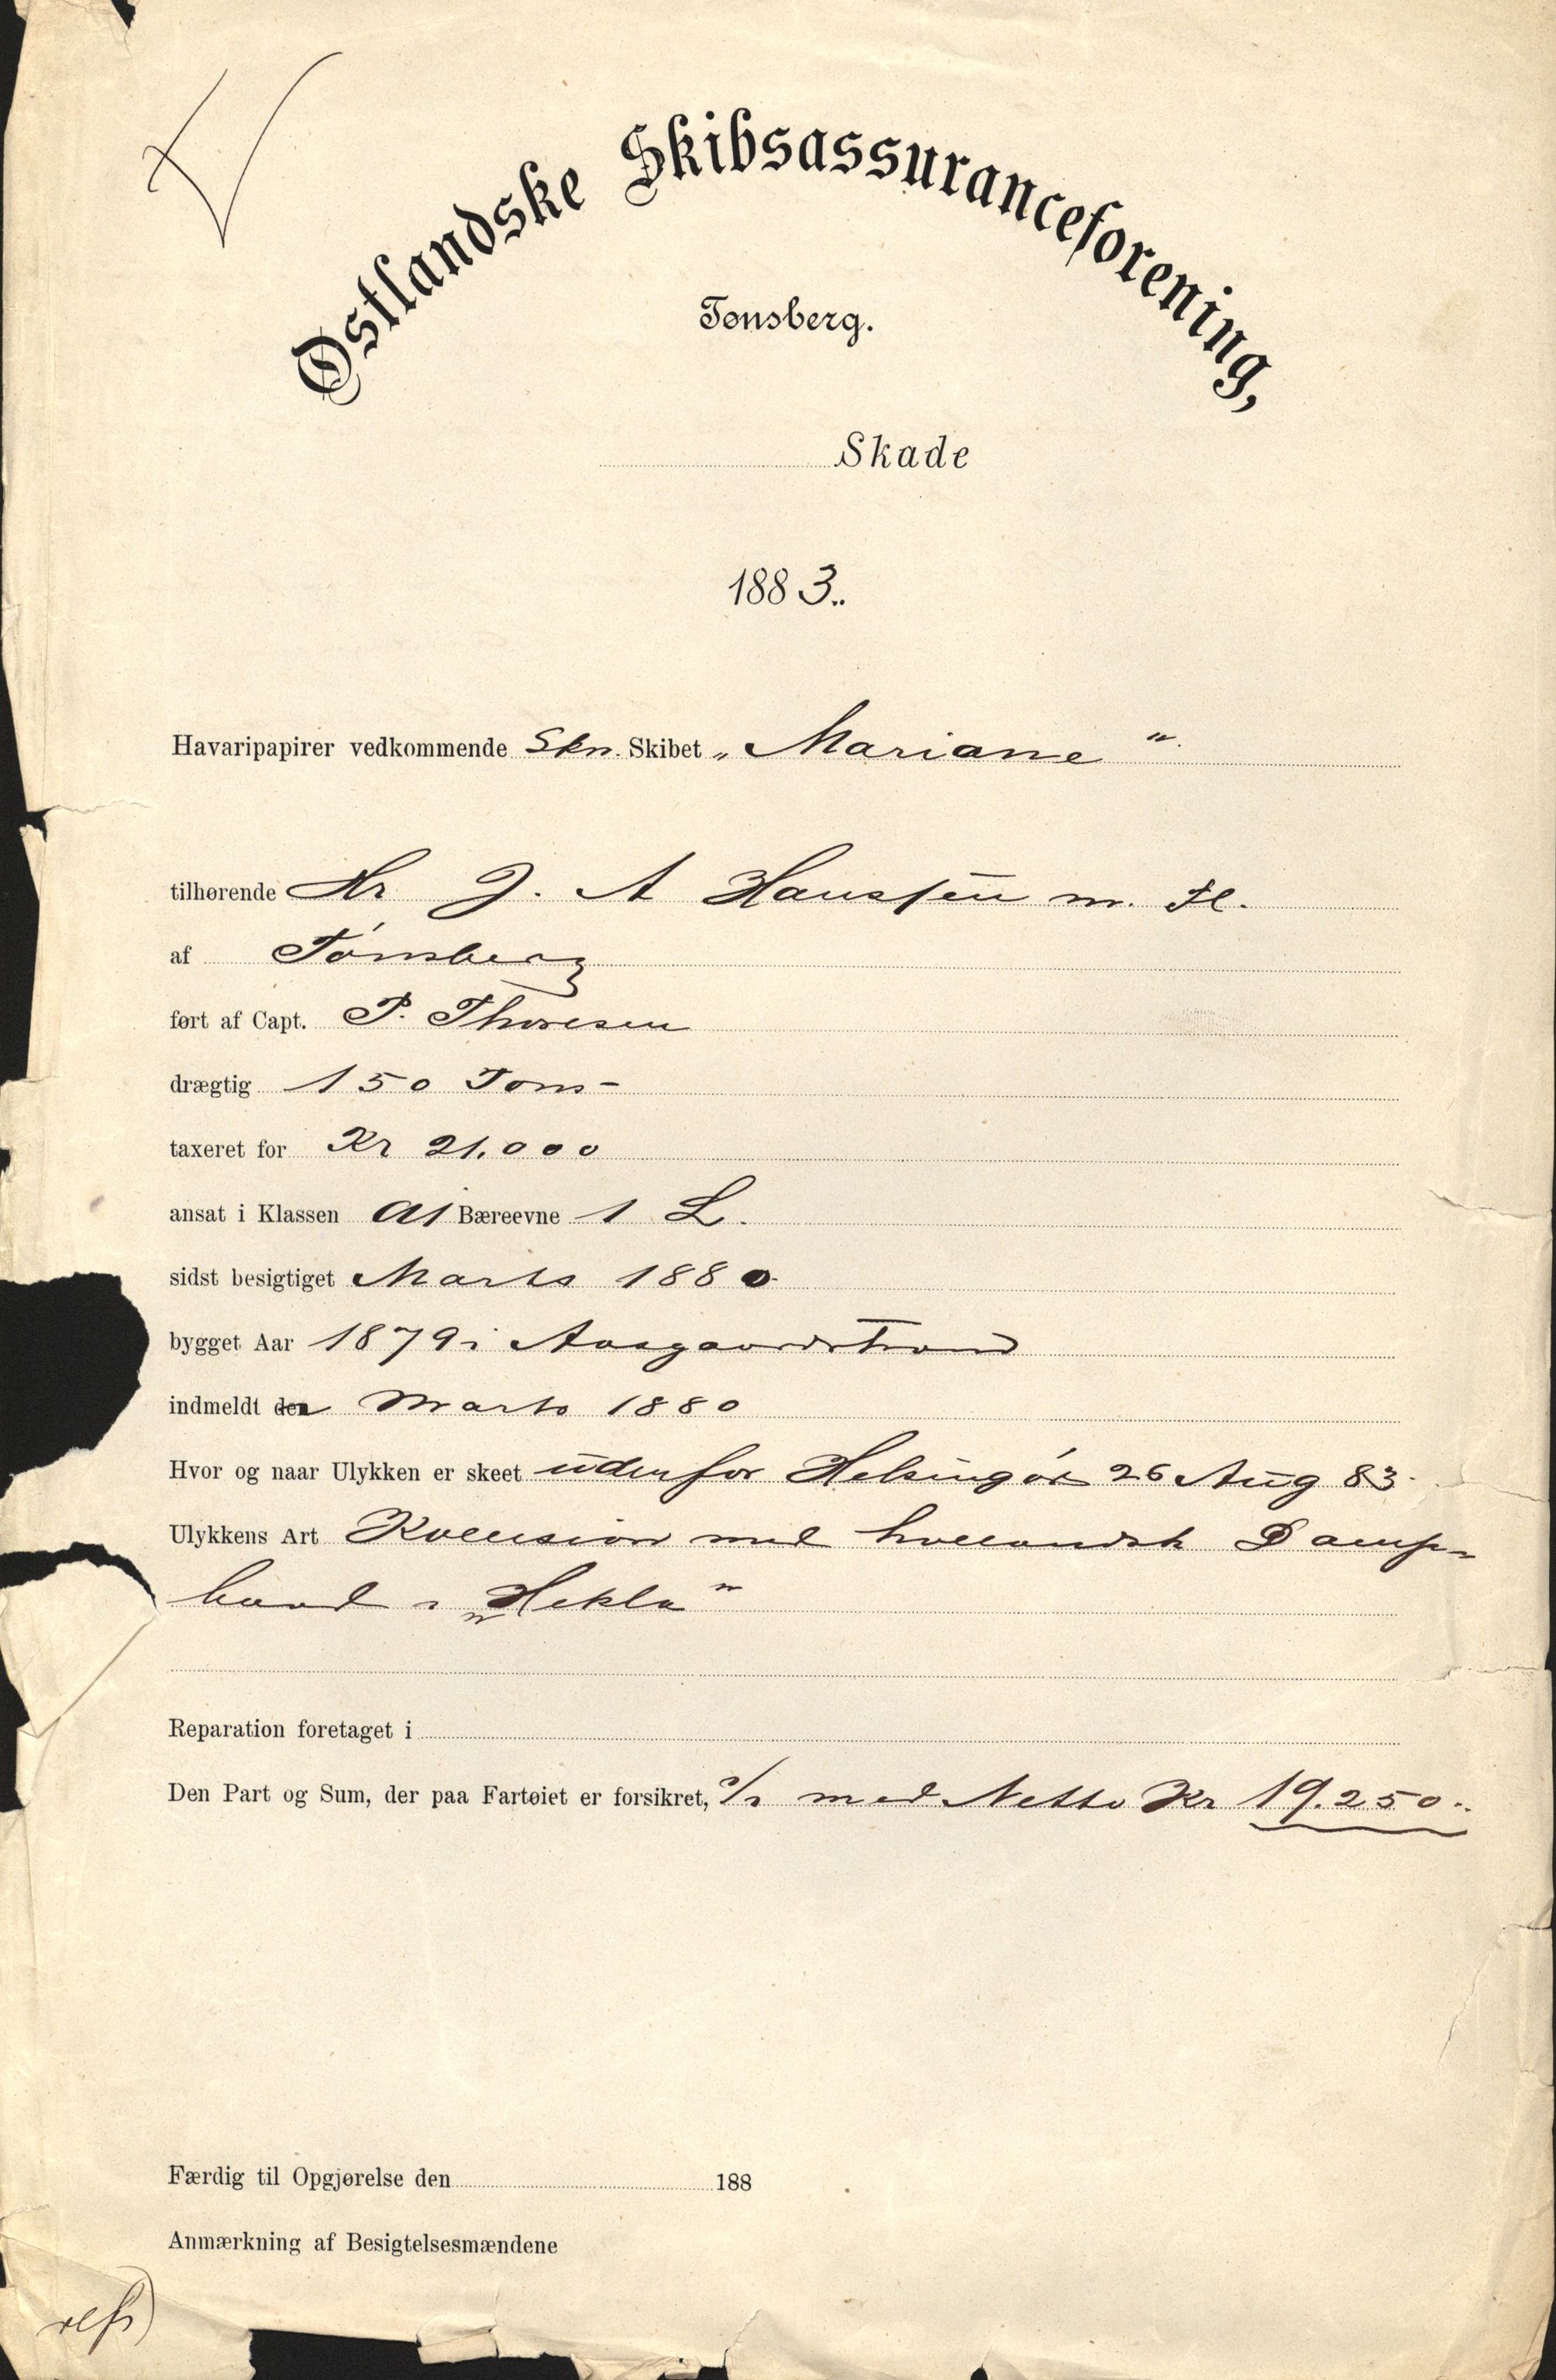 Østlandske Skibsassuranceforening,
Tønsberg.
Skade
1883.
Havaripapirer vedkommende Skn. Skibet „Mariane“
tilhørende Hr J. A Hanssen m. Fl.
af Tønsberg
ført af Capt. P. Thoresen
drægtig 150 Tons
taxeret for Kr 21.000
ansat i Klassen A1 Bæreevne 1 L.
sidst besigtiget Marts 1880
bygget Aar 1879 i Aasgaardstrand
indmeldt den Marts 1880
Hvor og naar Ulykken er skeet udenfor Helsingør 26 Aug 83
Ulykkens Art Kollision med hollandsk Damp-
baad „Hekla“
Reparation foretaget i
Den Part og Sum, der paa Fartøiet er forsikret, med Netto Kr 19.250.
Færdig til Opgjørelse den 188
Anmærkning af Besigtelsesmændene